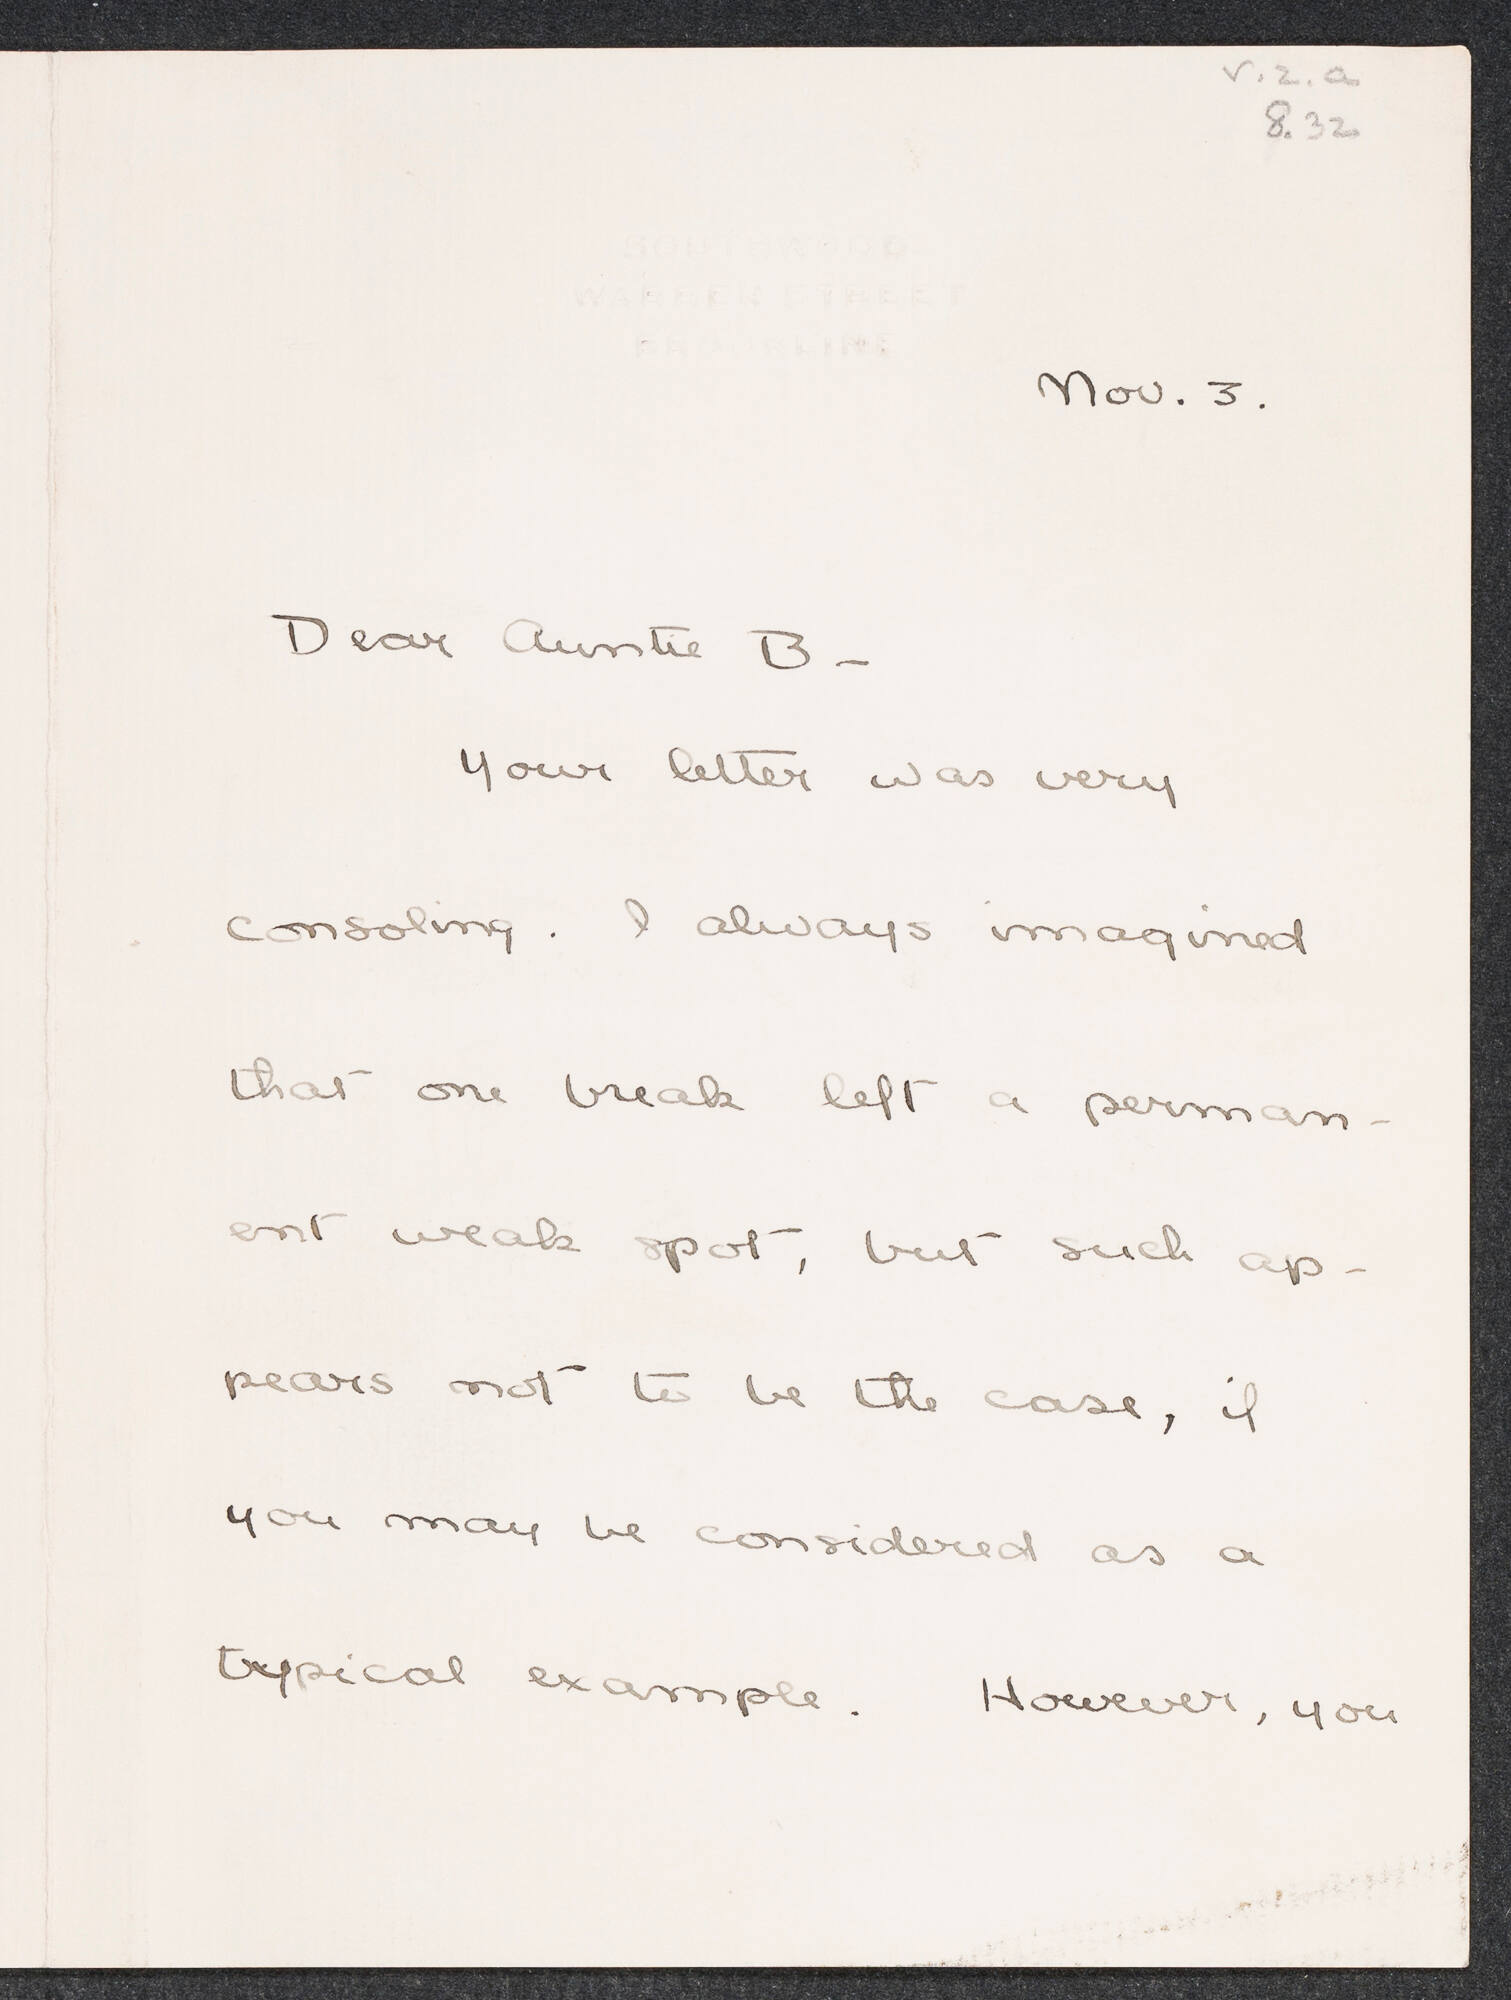 v.2.a
8.32
SOUTHWOOD
WARREN STREET
BROOKLINE
Nov. 3.
Dear Auntie B—
Your letter was very
consoling. I always imagined
that one break left a perman-
ent weak spot, but such ap-
pears not to be the case, if
you may be considered as a
typical example. However, you